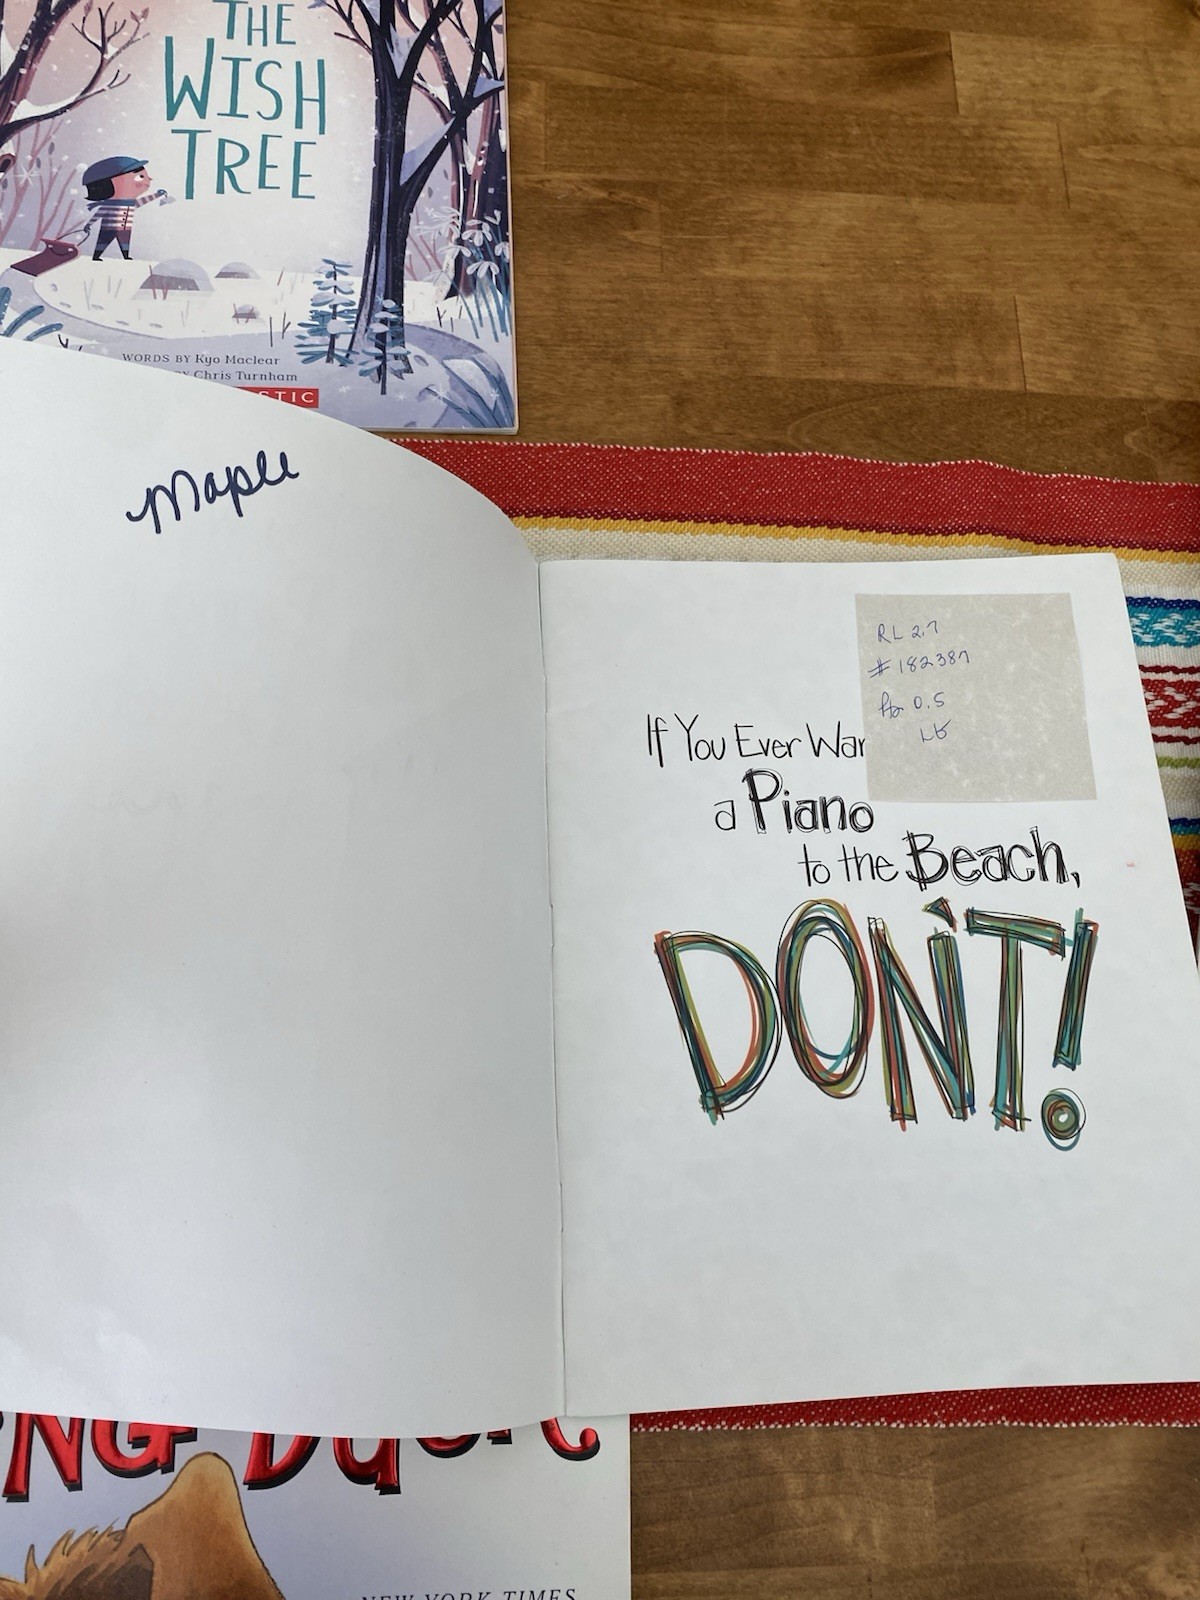 THE
WISH
TREE
WORDS BY Kyo Maclear
BY Chris Turnham
STIC
Maple
RL 2.7
# 182387
0.5
If You Ever Wan
a Piano
to the Beach,
DON'T!
NG Duck
NEW YORK TIMES